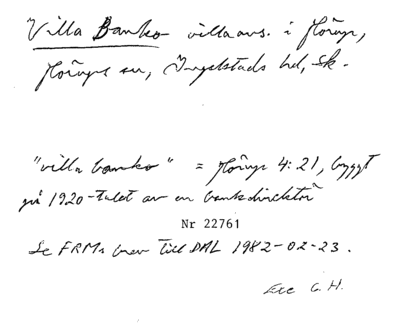 Villa Banko villaans. i Hörup,
Hörups sn, Ingelstads hd, Sk.
"villa banko" = Hörup 4:21, byggt
på 1920-talet av en bankdirektör
Nr 22761
Se FRMs brev till DAL 1982-02-23.
Exc G.H.